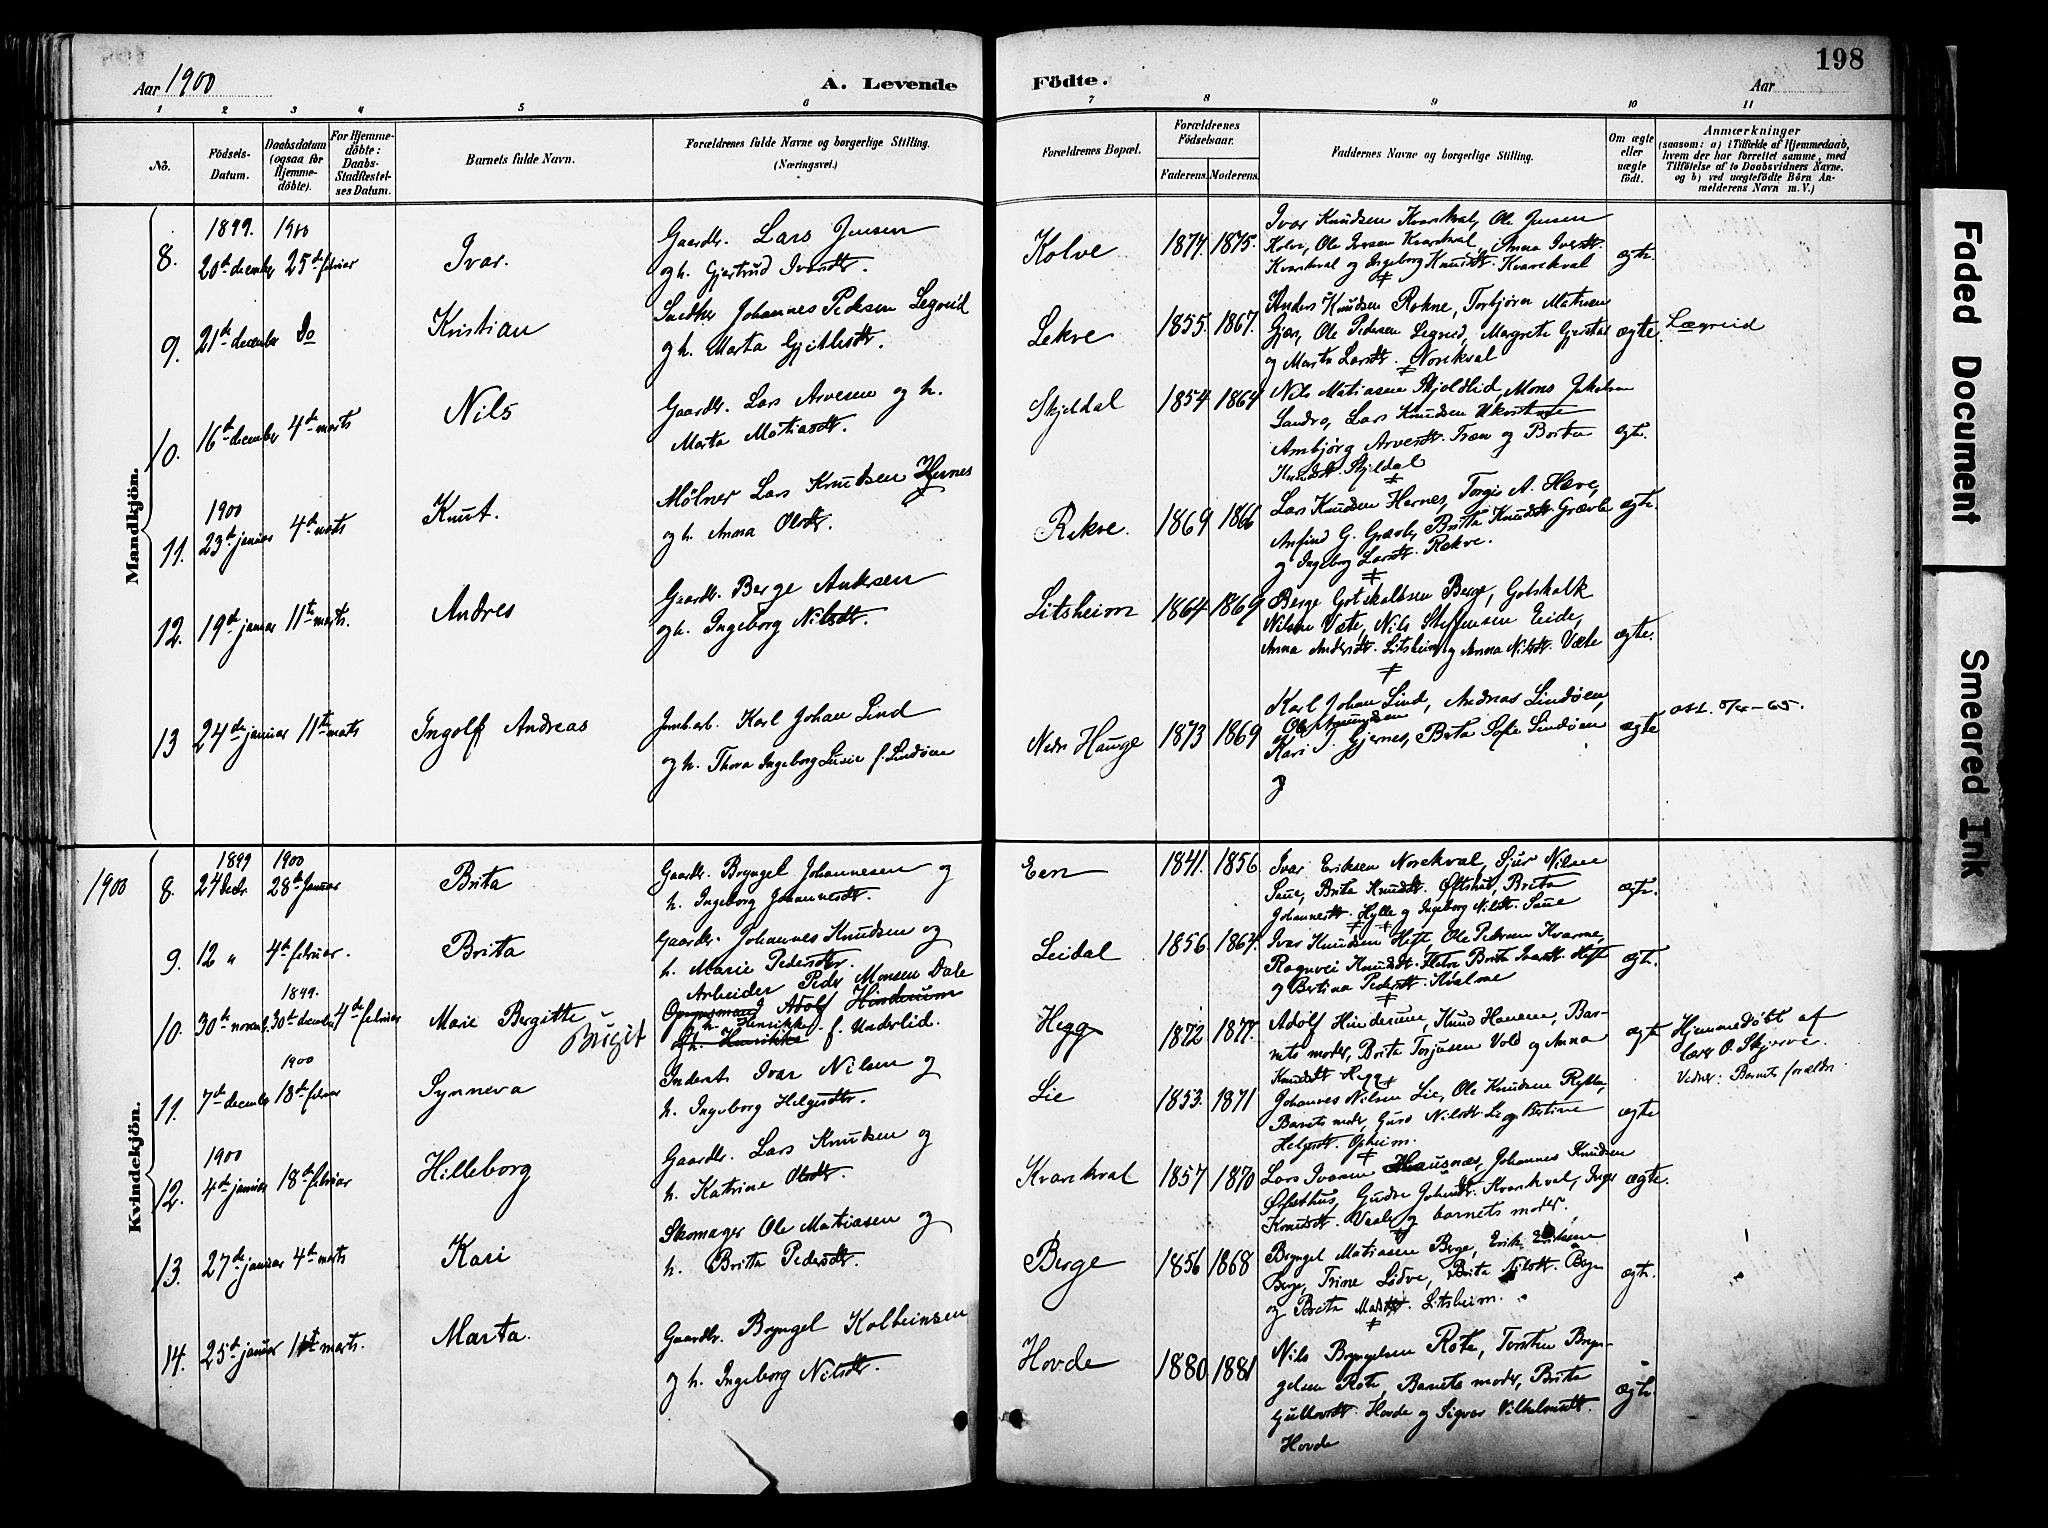 198
Aar 1900
A. Levende
Födte.
Aar
1 2 3 4 5 6 7 8 9 10 11
No.
Födsels-
Datum.
Daabsdatum
(ogsaa for
Hjemme-
döbte).
For Hjemme-
döbte:
Daabs-
Stadfæstel-
ses Datum.
Barnets fulde Navn.
Forældrenes fulde Navne og borgerlige Stilling.
(Næringsvei.)
Forældrenes Bopæl.
Forældrenes
Födselsaar.
Faderens. Moderens.
Faddernes Navne og borgerlige Stilling.
Om ægte
eller
uægte
födt.
Anmærkninger
(saasom: a) i Tilfælde af Hjemmedaab,
hvem der har forrettet samme, med
Tilföielse af to Daabsvidners Navne.
og b) ved uægtefödte Börn An-
melderens Navn m. V.)
Mandkjön.
1899. 1900
8. 20de december 25de februar
Ivar.
Gaardbr. Lars Jensen
og h. Gjertrud Iversdtr.
Kolve
1874. 1875.
Ivar Knudsen Kvarekval, Ole Jensen
Kolve, Ole Iversen Kvarekval, Anna Iversdtr.
Kvarekval og Ingeborg Knudsdtr. Kvarekval
ægte.
9. 21de december Do
Kristian
Snedker Johannes Pedersen Legreid
og h. Marta Gjitlesdtr.
Lekve
1855. 1867.
Anders Knudsen Rokne, Torbjørn Matsen
Gjøs, Ole Pedersen Legreid, Margrete Gjerstad
og Marta Larsdtr. Norekval
ægte.
Lægreid
10. 16de december 4de marts
Nils
Gaardbr. Lars Arvesen og h.
Marta Matiasdtr.
Skjeldal
1854 1864
Nils Matiasen Skjoldlid, Mons Jakobsen
Sandro, Lars Knudsen
Ambjørg Arvesdtr. Træn og Brita
Knudsdtr. Skjeldal
ægte.
1900
11. 23de januar 4de marts
Knut.
Mölner Lars Knudsen Hernes
og h. Anna Olsdtr.
Rekve.
1869 1866
Lars Knudsen Hernes, Torgis A. Heve,
Anfind G. Græsle, Brita Knudsdtr. Grævle
og Ingeborg Larsdtr. Rekve.
ægte.
12. 19de januar 11te marts.
Andres
Gaardbr. Berge Andersen
og h. Ingeborg Nilsdtr.
Litsheim
1864 1869
Berge Gotskalksen Berge, Gotskalk
Nilsen Væte, Nils Steffensen Eide,
Anna Andersdtr. Litsheim og Anna Nilsdtr. Væte
ægte.
13 24de januar 11te marts
Ingolf Andreas
Jernb.arb. Karl Johan Lind
og h. Thora Ingeborg Lusie f. Lindøen
Nedr Hauge
1873 1869
Karl Johan Lind, Andreas Lindøen,
Ole Amundsen
Kari J. Gjernes, Berta Sofie Lindøen
og
ægte
Kvindekjön.
1900
1899 1900
8. 24 decbr. 28de Januar
Brita
Gaardbr. Bryngel Johannesen og
h. Ingeborg Johannesdtr.
Een
1841. 1856.
Ivar Eriksen Norekval, Sjur Nilsen
Saue, Brita Knudsdtr. Øfsthus, Brita
Johannesdtr. Hylle og Ingeborg Nilsdtr. Saue
ægte.
9. 12 " 4de februar.
Brita
Gaardbr. Johannes Knudsen og
h. Marie Pedersdtr.
Leidal
1856. 1864.
Ivar Knudsen Hefte, Ole Pedersen Kvarme,
Ragnvei Knudsdtr. Flatre Brita Ivarsdtr. Hefte
og Bertina Pedersdtr. Kvalme
ægte.
1899.
10. 30de novembr. 30de december 4de februar
Marie Bergitte
Birgit
Arbeider Peder Monsen Dale
Opsynsmand Adolf Hinderum
og h. Henrikke f. Underlid.
og h. Henrikke
Hegg
1872 1877.
Adolf Hinderum, Knud Hansen, Bar-
nets moder, Brita Torjusen Vold og Anna
Knudsdtr. Hegg
ægte
Hjemmedöbt af
lærer O. Skjerve.
Vidner: Barnets forældre.
1900
11. 7de december 18de februar
Synneva
Inderst Ivar Nilsen og
h. Ingeborg Helgesdtr.
Lie
1853. 1871
Johannes Nilsen Lie, Ole Knudsen Rykke,
Barnets moder, Guro Nilsdtr. Lie og Bertine
Helgesdtr. Opheim.
ægte
1900
12. 4de januar 18de februar
Hilleborg
Gaardbr. Lars Knudsen og
h. Katrine Olsdtr.
Kvarekval
1857 1870
Lars Ivarsen Mausnæs, Johannes Knudsen
Øfsthus, Gudve Johansdtr. Kvarekval, Inger
Knudsdtr. og barnets moder.
ægte.
13. 27de januar 4de marts
Kari
Skomager Ole Matiasen og
h. Britta Pedersdtr.
Berge
1856 1868
Bryngel Matiasen Berge, Erik Eriksen
Berge, Trine Lødve, Brita Nilsdtr. Berge
og Brita Madsdtr. Litsheim.
ægte.
14. 25de januar 11te marts.
Marta.
Gaardbr. Bryngel Kolbeinsen
og h. Ingeborg Nilsdtr.
Hovde
1880 1881
Nils Bryngelsen Rote, Torsten Bryn-
gelsen Rote, Barnets moder, Brita
Gulleivsdtr. Hovde og Sigvor Vilhelmsdtr.
Hovde
ægte.
Faded Document
Smeared Ink